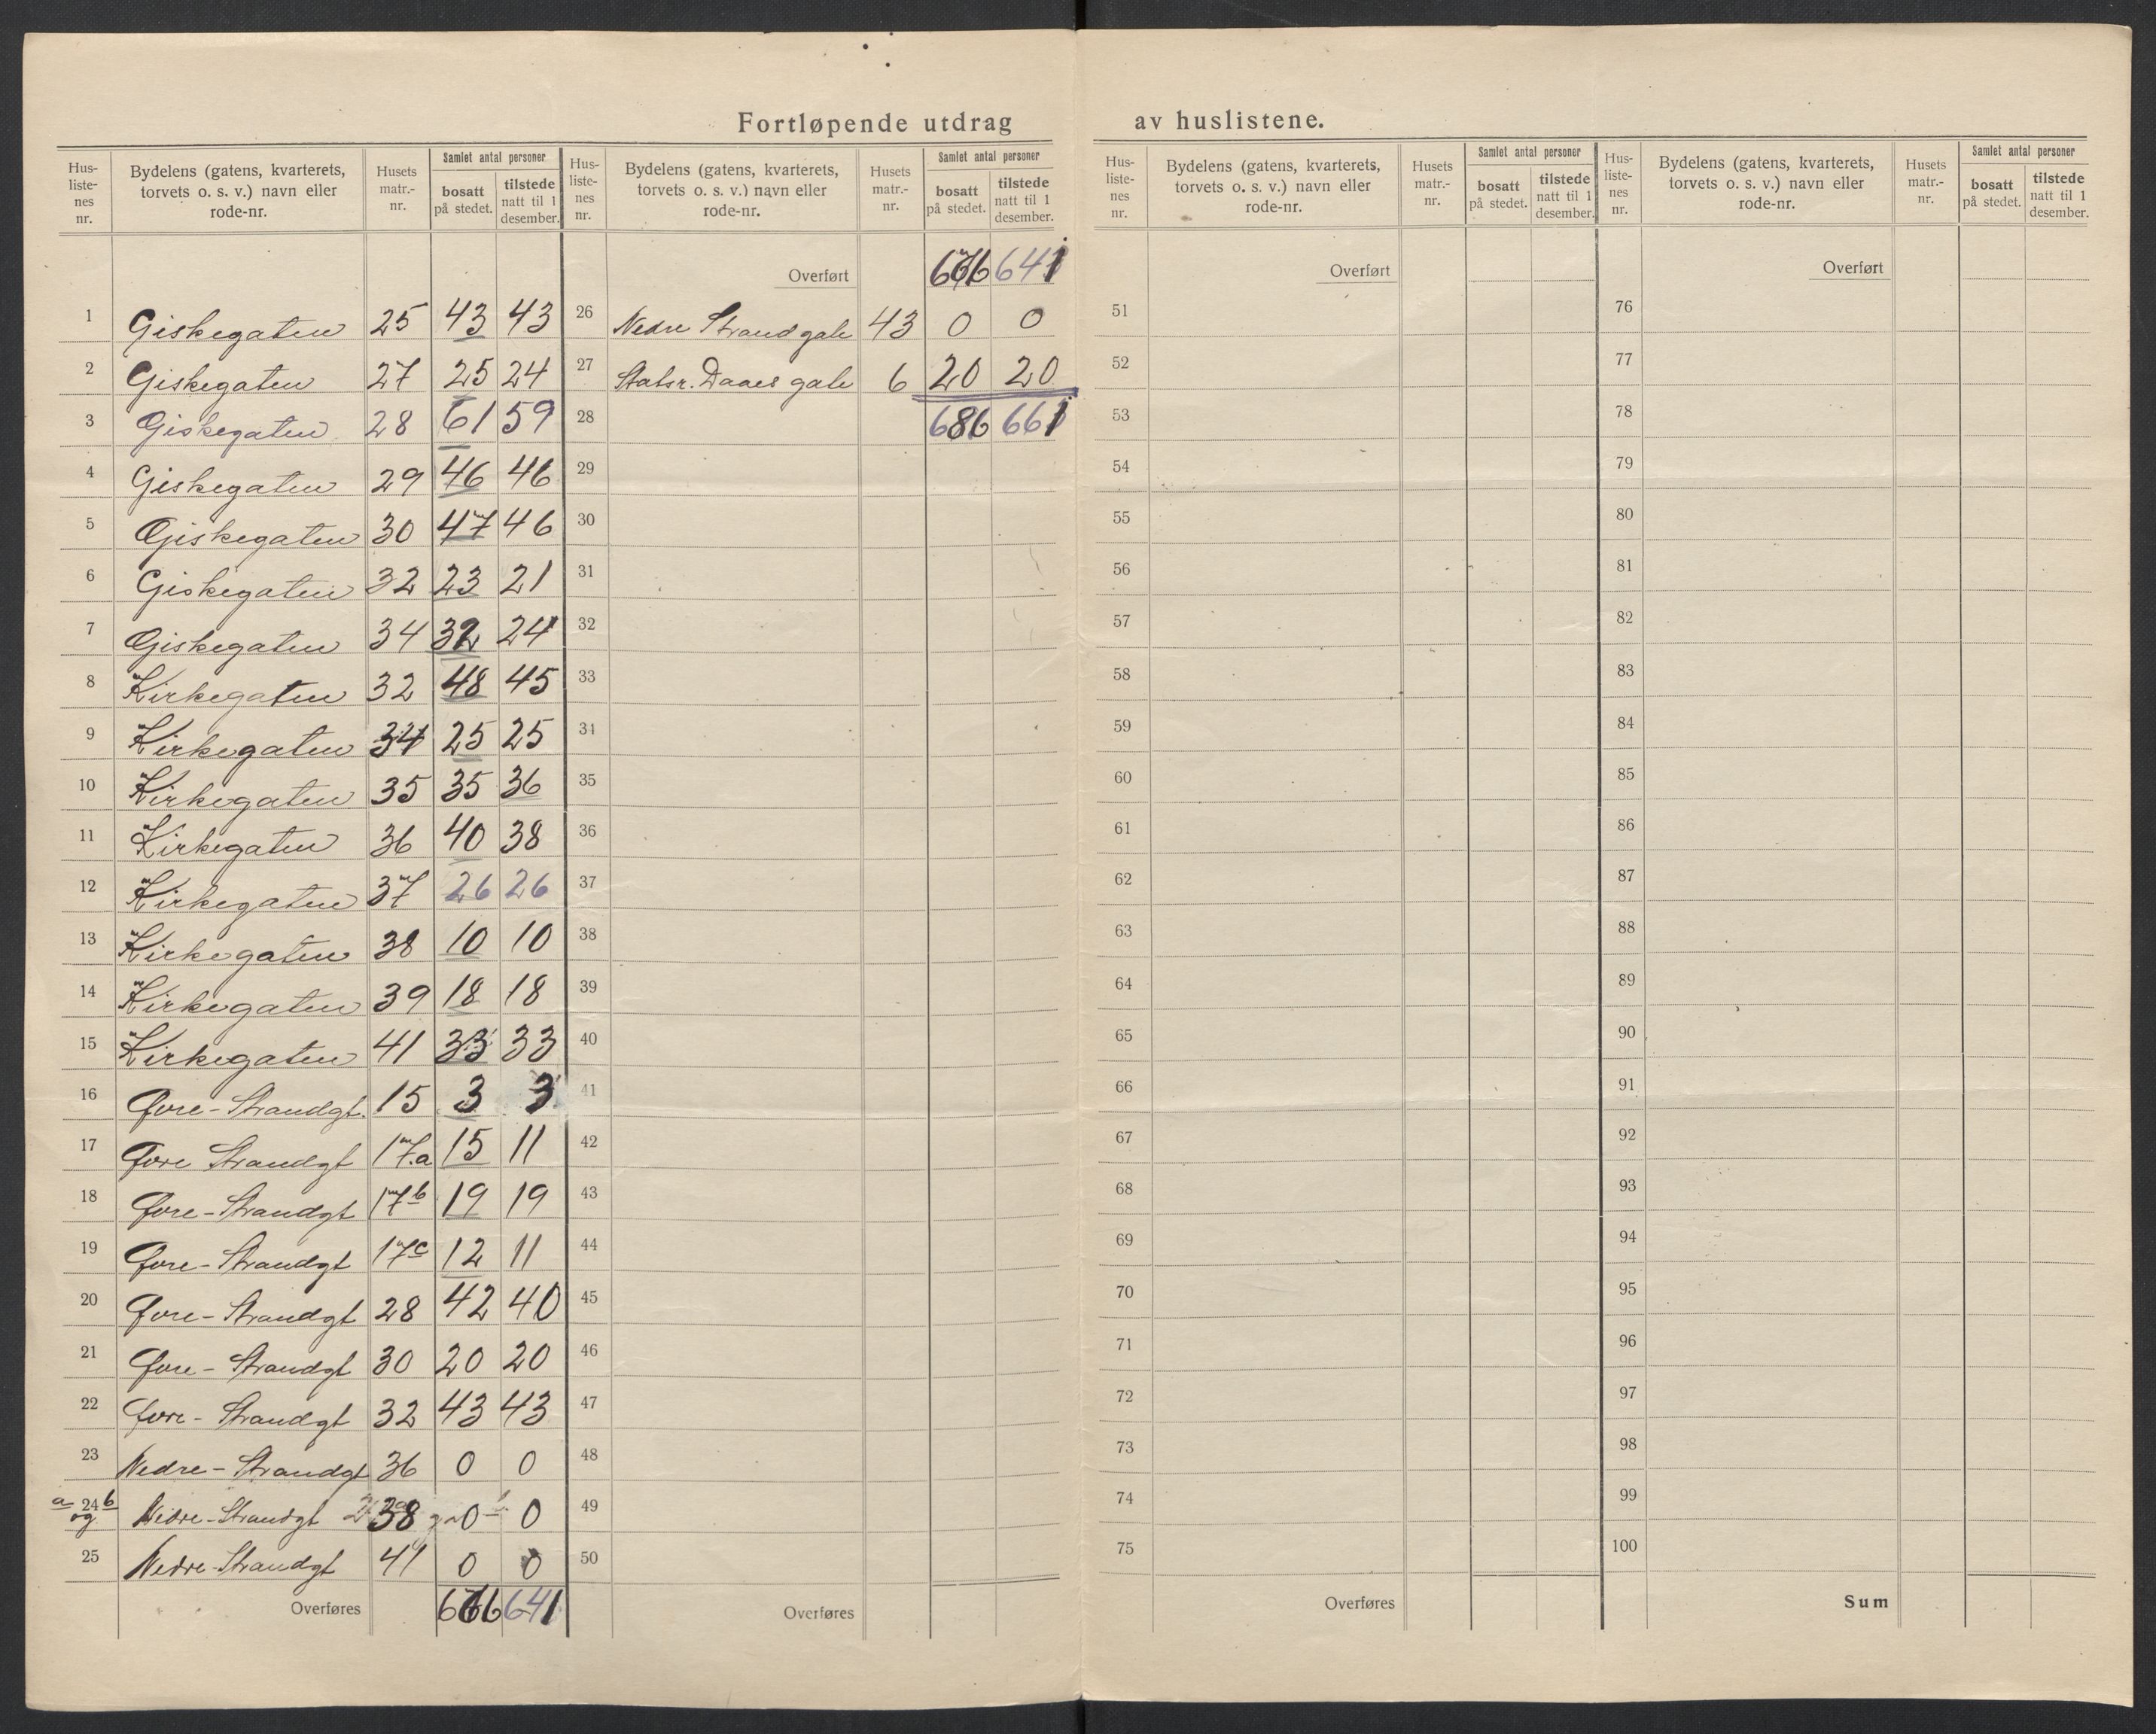 Fortløpende utdrag av huslistene.
Hus-liste-nes nr. | Bydelens (gatens, kvarterets, torvets o. s. v.) navn eller rode-nr. | Husets matr.-nr. | Samlet antal personer | bosatt på stedet. | tilstede natt til 1 desember.
1 Giskegaten 25 43 43
2 Giskegaten 27 25 24
3 Giskegaten 28 61 59
4 Giskegaten 29 46 46
5 Giskegaten 30 47 46
6 Giskegaten 32 23 21
7 Giskegaten 34 32 24
8 Kirkegaten 32 48 45
9 Kirkegaten 34 25 25
10 Kirkegaten 35 35 36
11 Kirkegaten 36 40 38
12 Kirkegaten 37 26 26
13 Kirkegaten 38 10 10
14 Kirkegaten 39 18 18
15 Kirkegaten 41 33 33
16 Øvre-Strandgt. 15 3 3
17 Øvre Strandgt 17.a 15 11
18 Øvre-Strandgt 17b 19 19
19 Øvre-Strandgt 17c 12 11
20 Øvre-Strandgt 28 42 40
21 Øvre-Strandgt 30 20 20
22 Øvre-Strandgt 32 43 43
23 Nedre-Strandgt 36 0 0
a og 24 b Nedre-Strandgt 38 0 0
25 Nedre-Strandgt 41 0 0
Overføres 666 641
Hus-liste-nes nr. | Bydelens (gatens, kvarterets, torvets o. s. v.) navn eller rode-nr. | Husets matr.-nr. | Samlet antal personer | bosatt på stedet. | tilstede natt til 1 desember.
Overført 666 641
26 Nedre Strandgate 43 0 0
27 Statsr. Daaes gate 6 20 20
28 686 661
29
30
31
32
33
34
35
36
37
38
39
40
41
42
43
44
45
46
47
48
49
50
Overføres
Hus-liste-nes nr. | Bydelens (gatens, kvarterets, torvets o. s. v.) navn eller rode-nr. | Husets matr.-nr. | Samlet antal personer | bosatt på stedet. | tilstede natt til 1 desember.
Overført
51
52
53
54
55
56
57
58
59
60
61
62
63
64
65
66
67
68
69
70
71
72
73
74
75
Overføres
Hus-liste-nes nr. | Bydelens (gatens, kvarterets, torvets o. s. v.) navn eller rode-nr. | Husets matr.-nr. | Samlet antal personer | bosatt på stedet. | tilstede natt til 1 desember.
Overført
76
77
78
79
80
81
82
83
84
85
86
87
88
89
90
91
92
93
94
95
96
97
98
99
100
Sum